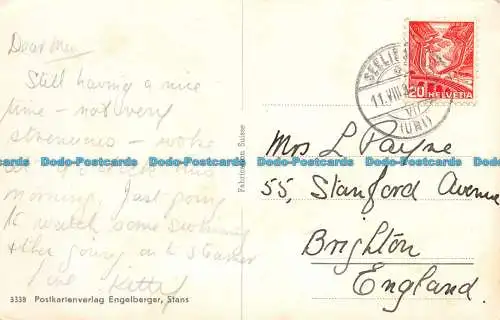 Dear Mu
Still having a nice
time – not very
strenuous – woke
at
morning. Just going
to watch some swimming
& then going on steamer
love Kitty
3338 Postkartenverlag Engelberger, Stans
Fabrication Suisse
SEELIS
11.VIII.3
(URI)
20 HELVETIA
Mrs L Payne
55, Stanford Avenue
Brighton
England.
Dodo-Postcards Dodo-Postcards Dodo-Postcards Dodo-Postcards Dodo-Postcards